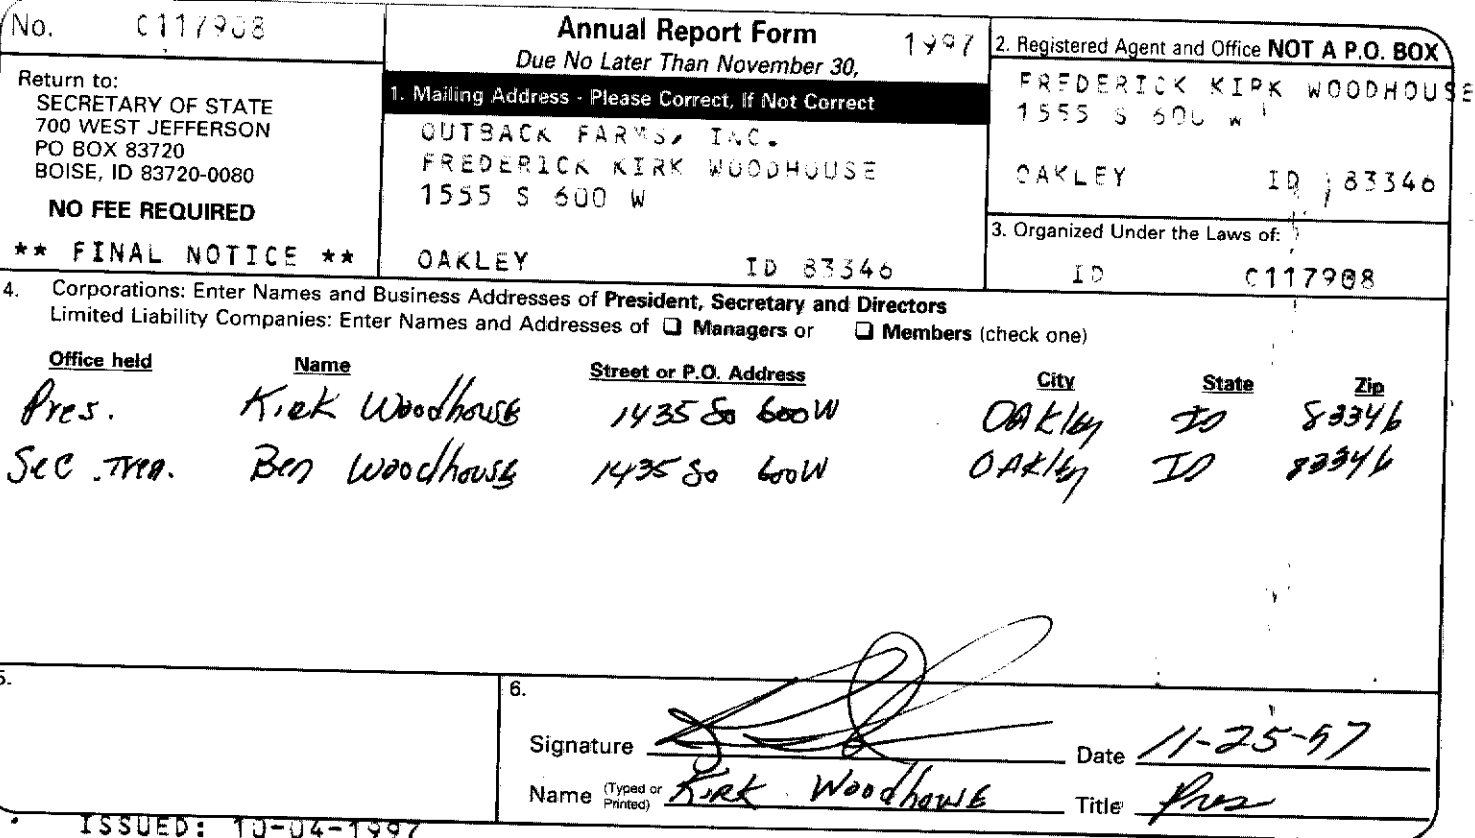 No. C117908
Annual Report Form 1997
Due No Later Than November 30,
Return to:
SECRETARY OF STATE
700 WEST JEFFERSON
PO BOX 83720
BOISE, ID 83720-0080
NO FEE REQUIRED
** FINAL NOTICE **
1. Mailing Address - Please Correct, If Not Correct
OUTBACK FARMS, INC.
FREDERICK KIRK WOODHOUSE
1555 S 600 W
OAKLEY ID 83346
2. Registered Agent and Office NOT A P.O. BOX
FREDERICK KIRK WOODHOUSE
1555 S 600 W
OAKLEY ID 83346
3. Organized Under the Laws of:
ID C117908
4. Corporations: Enter Names and Business Addresses of President, Secretary and Directors
Limited Liability Companies: Enter Names and Addresses of ❑ Managers or ❑ Members (check one)
Office held Name Street or P.O. Address City State Zip
Pres. Kirk Woodhouse 1435 So 600W Oakley ID 83346
Sec. Trea. Ben Woodhouse 1435 So 600W Oakley ID 83346
5.
6.
Signature Date 11-25-97
Name (Typed or Printed) Kirk Woodhouse Title Pres
ISSUED: 10-04-1997